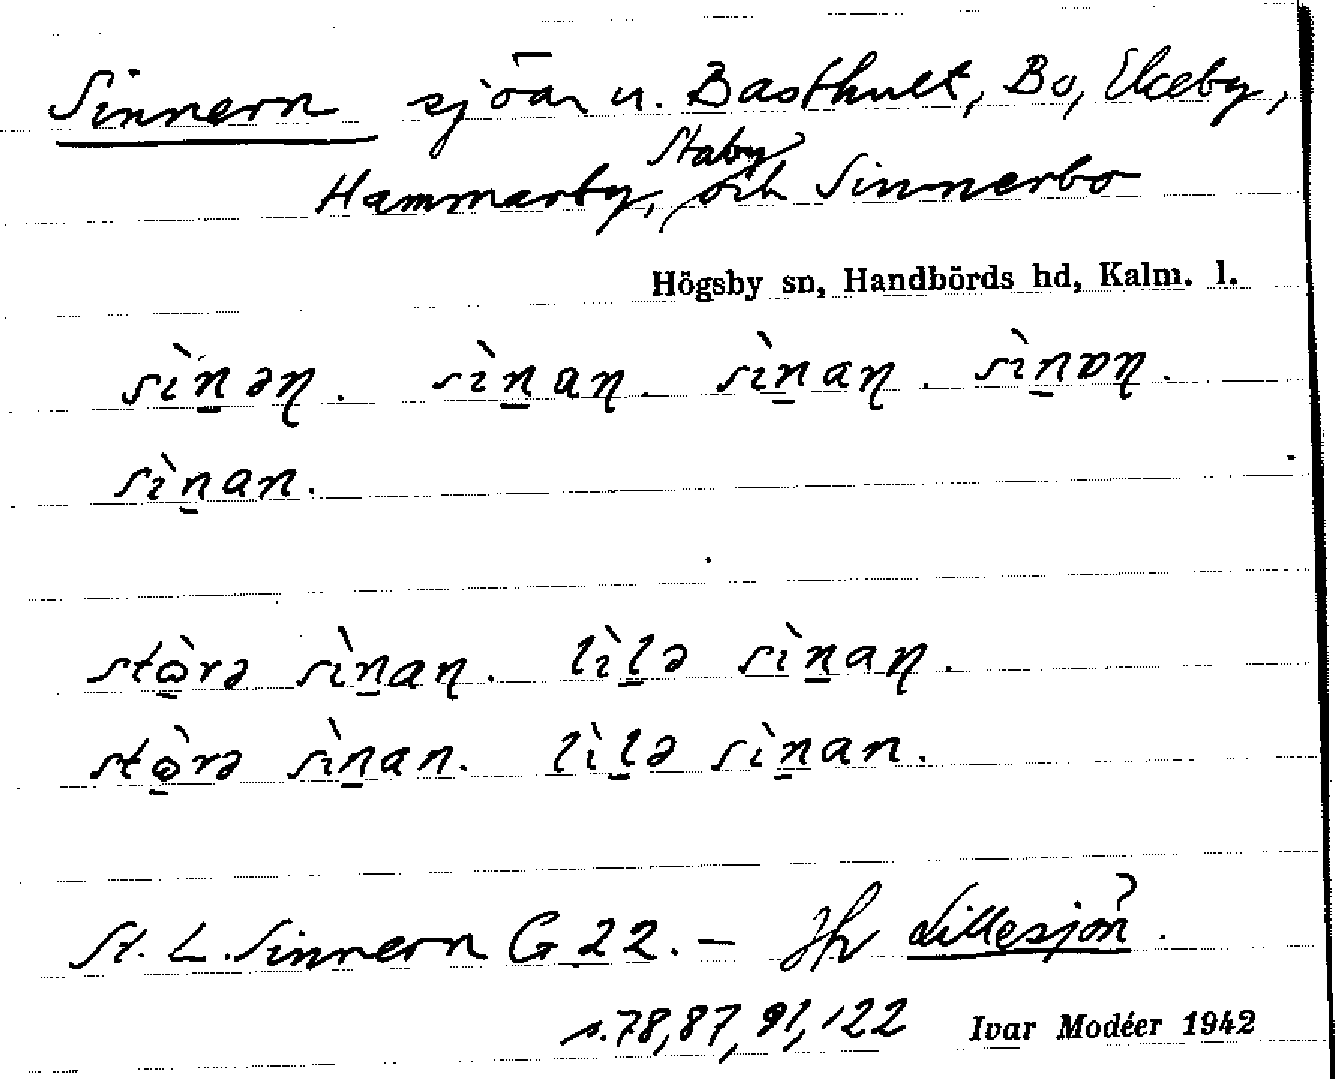 Sinnern sjöar u. Basthult, Bo, Ekeby,
Staby
Hammarby, och Sinnerbo
Högsby sn, Handbörds hd, Kalm. l.
sìn̲əɳ. sìn̲aɳ. sìn̲aɳ. sìn̲ɒɳ.
sìn̲an.
stò̲rə sìn̲aɳ. lìl̲ə sìn̲aɳ.
stò̲rə sìn̲an. lìl̲ə sìn̲an.
St. L. Sinnern G 22. – Lillesjön.
s. 78, 87, 91, 122 Ivar Modéer 1942